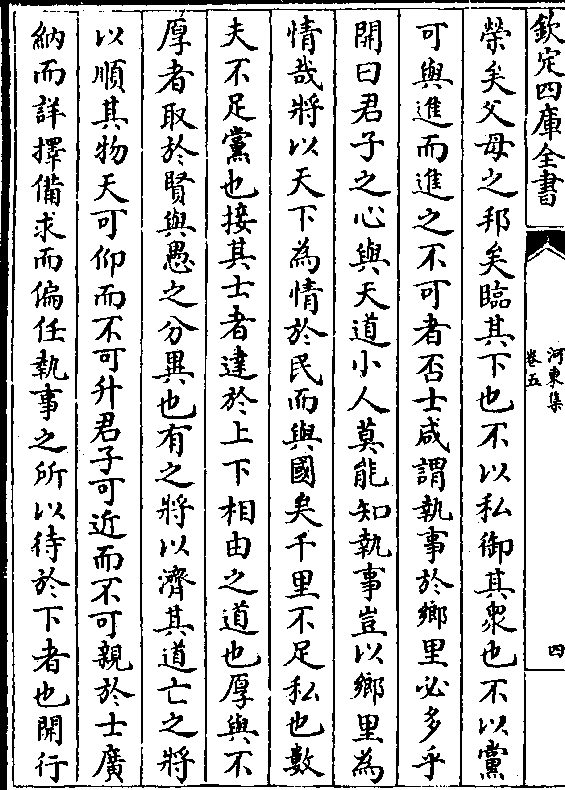 欽定四庫全書
河東集
卷五
四
榮矣父母之邦矣臨其下也不以私御其衆也不以黨
可與進而進之不可者否士咸謂執事於鄉里必多乎
開曰君子之心與天道小人莫能知執事豈以鄉里為
情哉將以天下為情於民而與國矣千里不足私也數
夫不足黨也接其士者達於上下相由之道也厚與不
厚者取於賢與愚之分異也有之將以濟其道亡之將
以順其物天可仰而不可升君子可近而不可親於士廣
納而詳擇備求而偏任執事之所以待於下者也開行